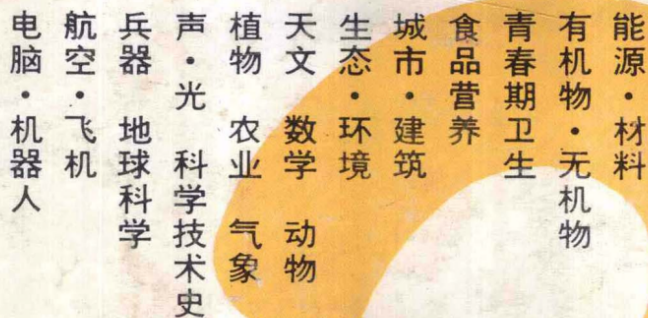 能源·材料
有机物·无机物
青春期卫生
食品营养
城市·建筑
生态·环境
天文 数学 动物
植物 农业 气象
声·光 科学技术史
兵器 地球科学
航空·飞机
电脑·机器人